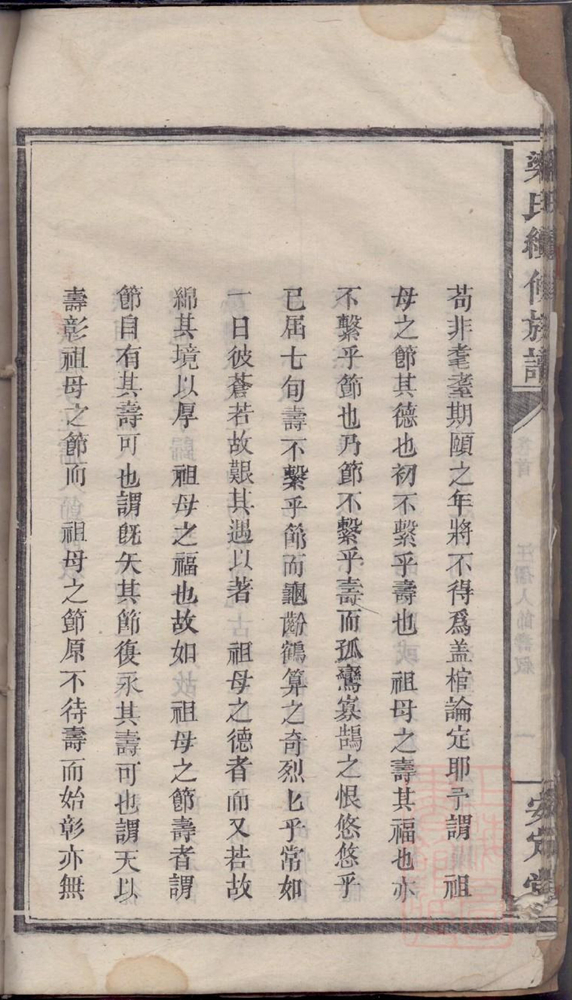 梁氏續修族譜
卷首
汪孺人節壽敘
一
安定堂
苟非耄耋期頤之年將不得爲盖棺論定耶予謂 祖
母之節其德也初不繫乎壽也 祖母之壽其福也亦
不繫乎節也乃節不繫乎壽而孤鸞寡鵠之恨悠悠乎
已屆七旬壽不繫乎節而龜齡鶴算之奇烈匕乎常如
一日彼蒼若故艱其遇以著 祖母之德者而又若故
綿其境以厚 祖母之福也故如 祖母之節壽者謂
節自有其壽可也謂既矢其節復永其壽可也謂天以
壽彰祖母之節而 祖母之節原不待壽而始彰亦無